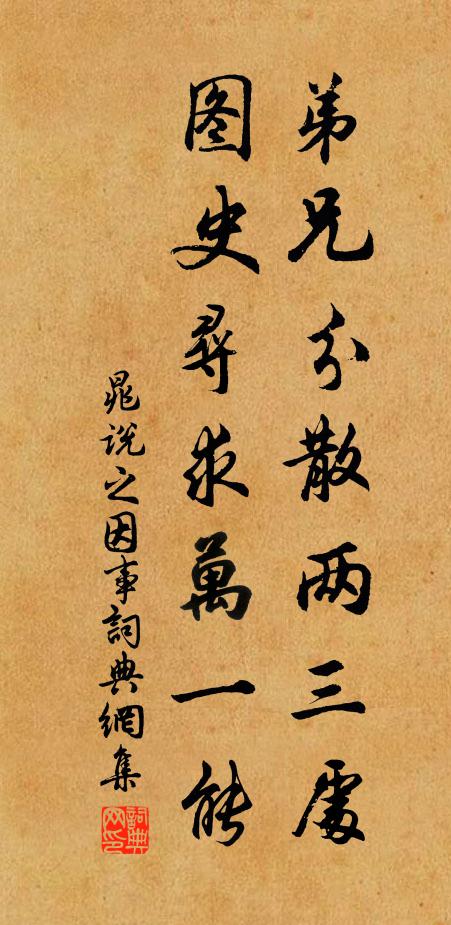 弟兄分散两三處
图史尋求萬一能
晁说之因事詞典網集
詞典网印